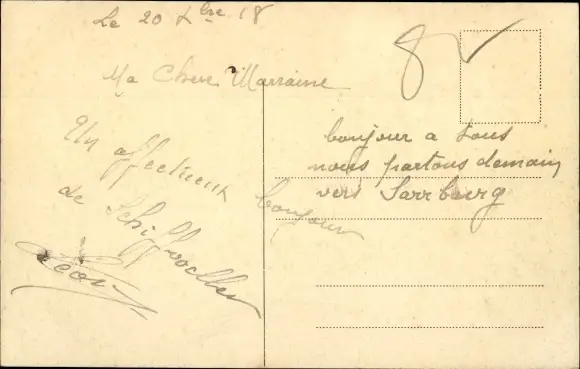 Le 20 Xbre 18
Ma Chere Marraine
Un affectueux bonjour
de Schiffweiller
Léon
8
bonjour a tous
nous partons demain
vers Sarrburg